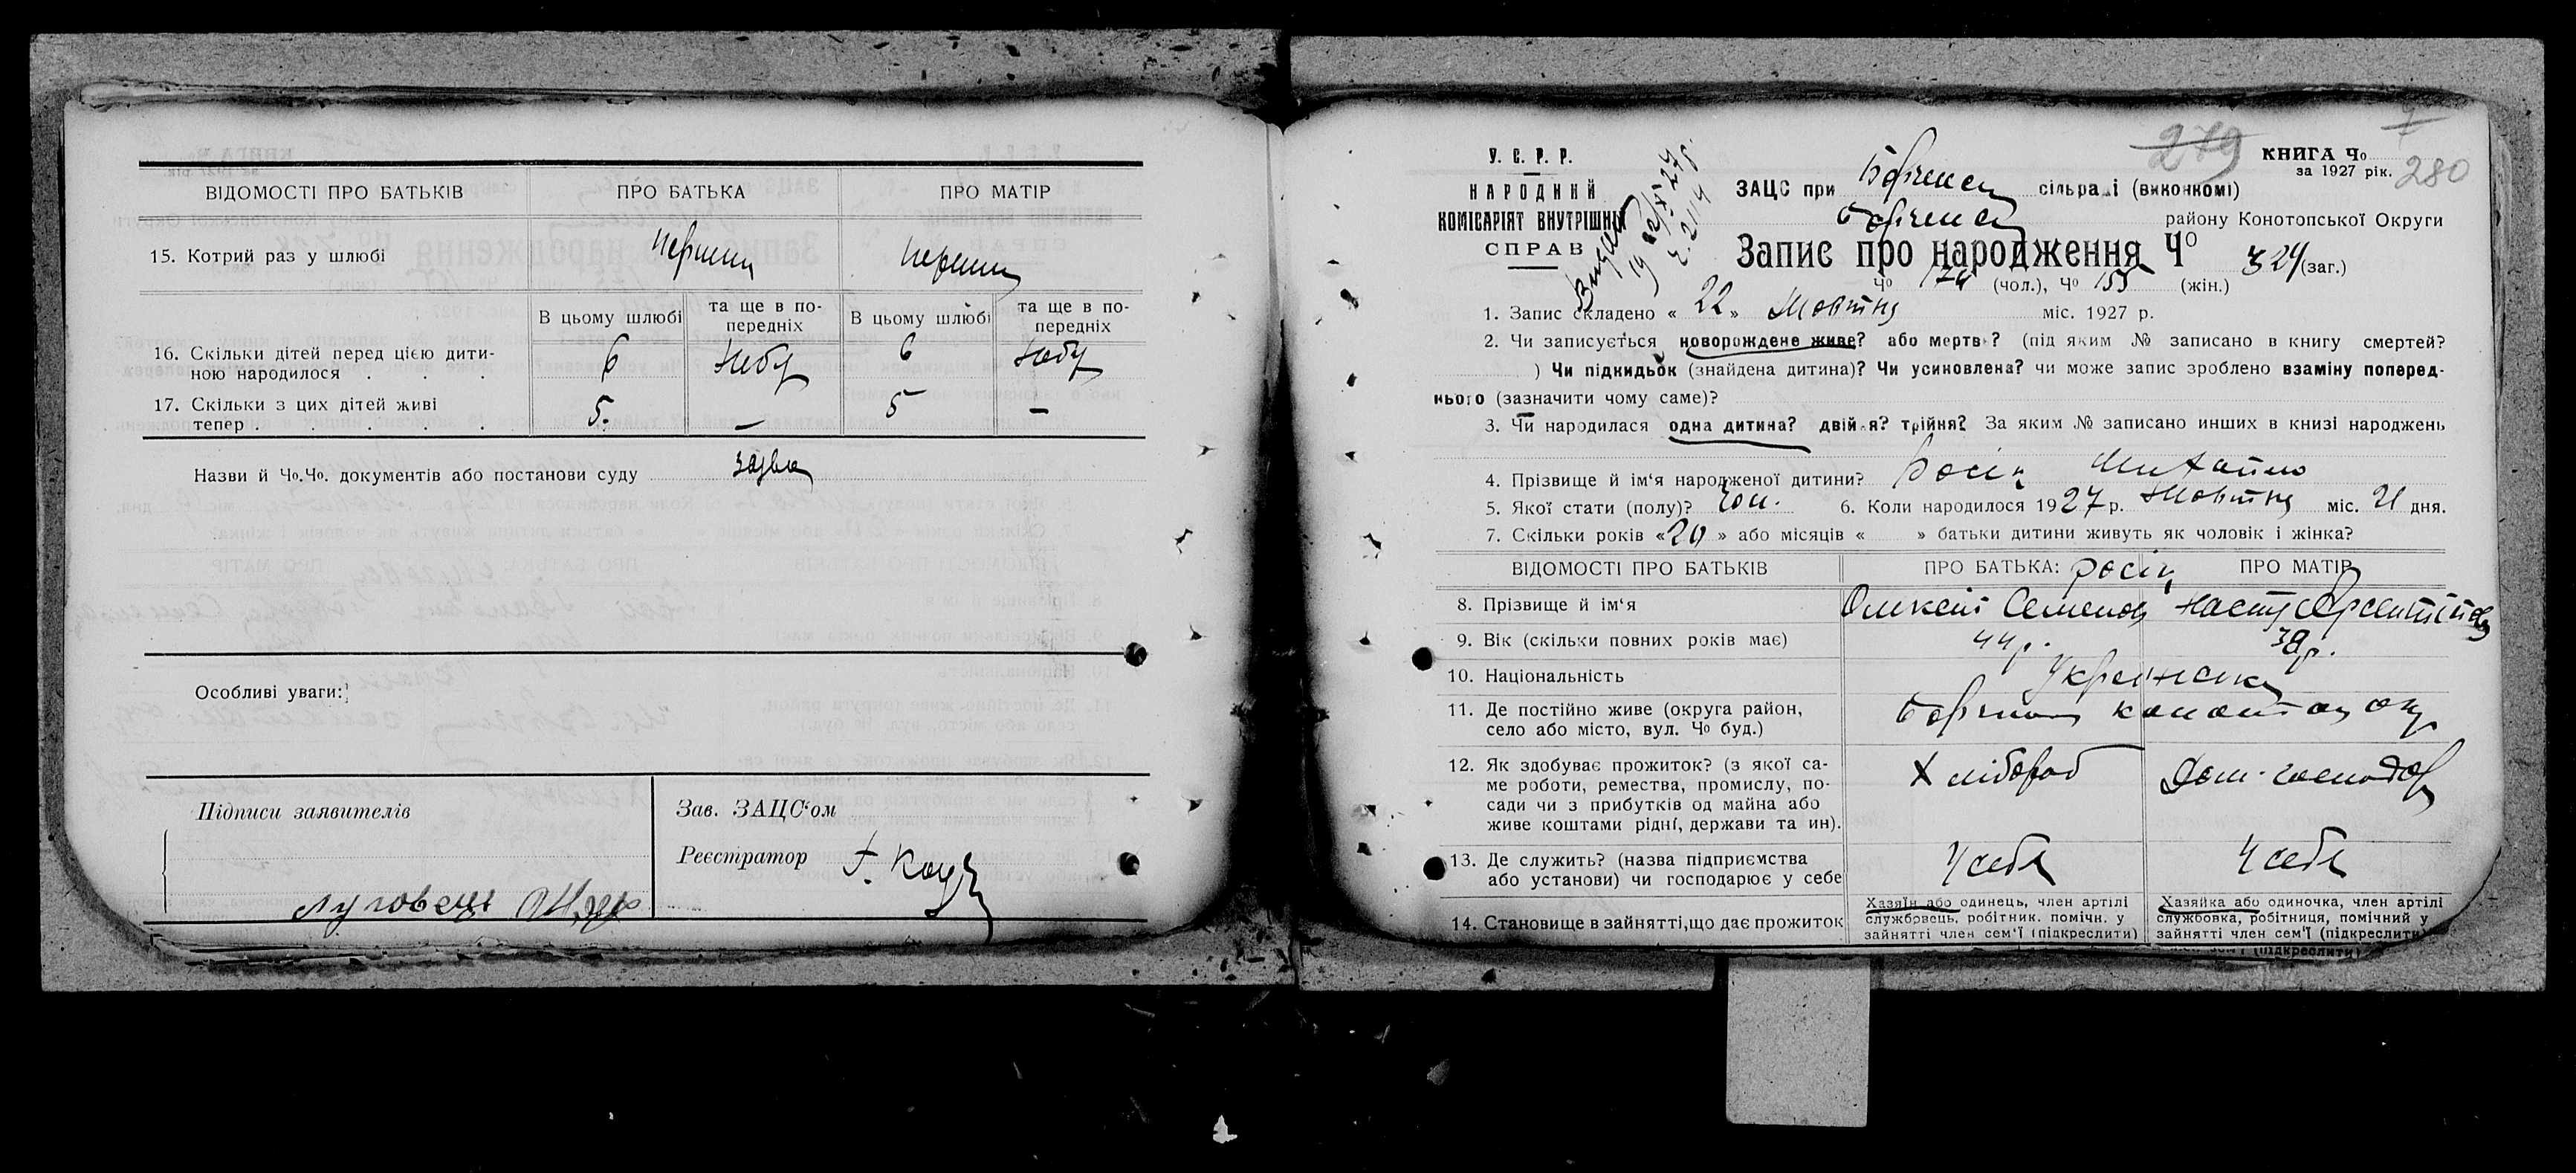 ВІДОМОСТІ ПРО БАТЬКІВ
ПРО БАТЬКА
ПРО МАТІР
15. Котрий раз у шлюбі
В цьому шлюбі
та ще в по-
передніх
В цьому шлюбі
та ще в по-
передніх
16. Скільки дітей перед цією дити-
ною народилося . . .
6
6
17. Скільки з цих дітей живі
тепер . . . . .
5. — 5 —
Назви й Чо.Чо. документів або постанови суду заява
Особливі уваги:
Підписи заявителів
Луговець
Зав. ЗАЦС‘ом
Реєстратор
279
7
280
У. С. Р. Р.
НАРОДНИЙ
КОМІСАРІЯТ ВНУТРІШНІХ
СПРАВ
КНИГА Чо
за 1927 рік.
ЗАЦС при сільраді (виконкомі)
району Конотопської Округи
Запис про народження Чо 329 (заг.)
Чо 174 (чол.), Чо 155 (жін.)
1. Запис складено « 22 » Жовтня міс. 1927 р.
2. Чи записується новорождене живе? або мертве? (під яким № записано в книгу смертей?
) Чи підкидьок (знайдена дитина)? Чи усиновлена? чи може запис зроблено взаміну поперед-
нього (зазначити чому саме)?
3. Чи народилася одна дитина? двійня? трійня? За яким № записано инших в книзі народжень
4. Прізвище й ім‘я народженої дитини? Михайло
5. Якої стати (полу)? Чол. 6. Коли народилося 1927 р. Жовтня міс. 21 дня.
7. Скільки років «20» або місяців « » батьки дитини живуть як чоловік і жінка?
ВІДОМОСТІ ПРО БАТЬКІВ
ПРО БАТЬКА:
ПРО МАТІР
8. Прізвище й ім‘я
Олексій Семенов
9. Вік (скільки повних років має)
44 р.
10. Національність
Українська
11. Де постійно живе (округа район,
село або місто, вул. Чо буд.)
12. Як здобуває прожиток? (з якої са-
ме роботи, ремества, промислу, по-
сади чи з прибутків од майна або
живе коштами рідні, держави та ин).
Хлібороб
Дом. господар
13. Де служить? (назва підприємства
або установи) чи господарює у себе
У себе
У себе
14. Становище в зайнятті,що дає прожиток
Хазяїн або одинець, член артілі
службовець, робітник. помічн. у
зайнятті член сем‘ї (підкреслити)
Хазяйка або одиночка, член артілі
службовка, робітниця, помічний у
зайнятті член сем‘ї (підкреслити)
(підкреслити)